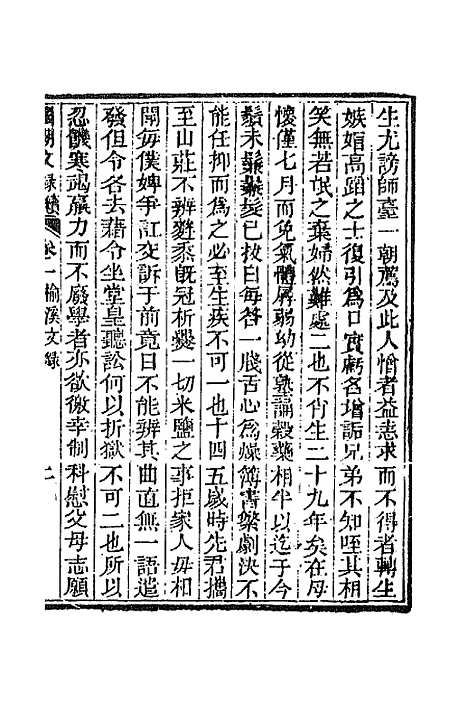 生尤謗師臺一朝薦及此人憎者益恚求而不得者轉生
嫉媢高蹈之士復引為口實虧名增詬兄弟不知咥其相
笑無若氓之棄婦然難處二也不肖生二十九年矣在母
懷僅七月而免氣體孱弱幼從塾誦穀藥相半以迄于今
鬚未鬖鬖髮已拔白每答一牋舌心為燥簿書榮劇決不
能任抑而為之必至生疾不可一也十四五歲時先君攜
至山莊不辨䜴黍旣冠析爨一切米鹽之事拒家人毋相
聞每僕婢爭訌交訴于前竟日不能辨其曲直無一語遣
發但令各去藉令坐堂皇聽訟何以折獄不可二也所以
忍饑寒竭羸力而不廢學者亦欲徼幸制科慰父母志願
國朝文錄 卷一榆溪文錄 二